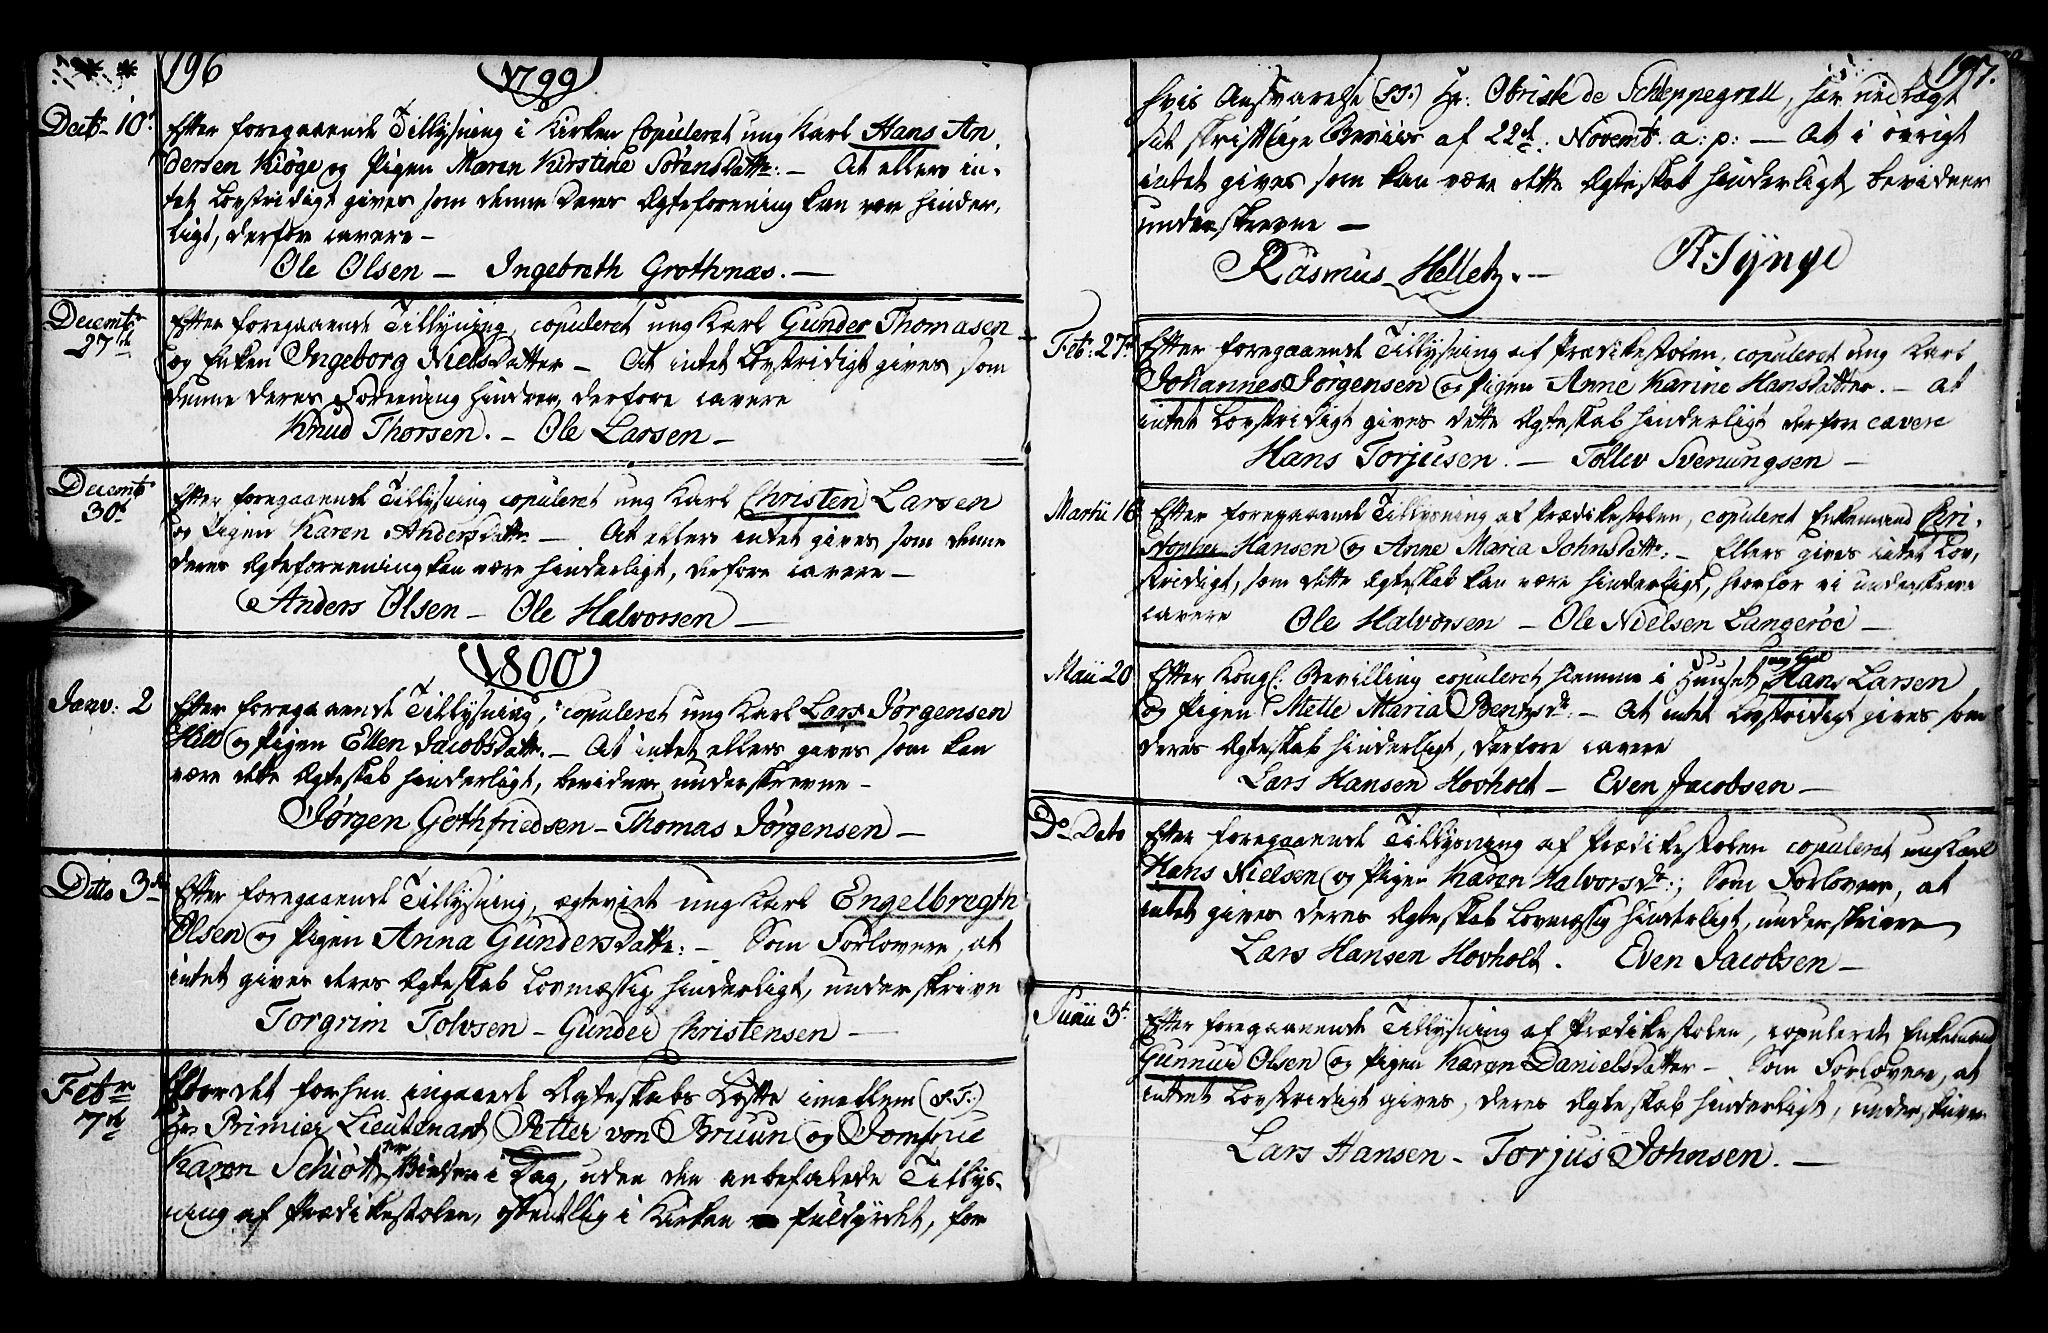 196
1799
Dcbr 10de Efter foregaaende Tillysning i Kirken Copuleret ung Karl Hans An
dersen Kiöge og Pigen Maren Kirstine SörensDattr: – At ellers in-
tet Lovstridigt gives som denne Deres Ægteforening kan være hinder,
ligt, derfor cavere –
Ole Olsen – Ingebreth Grothnæs. –
Decembr 27de Efter foregaaende Tillysning, copuleret ung Karl Gunder Thomasen
og Enken Ingeborg NielsDatter – At intet Lovstridigt gives som
denne deres Foreening hindrer, derfore cavere
Knud Thorsen. – Ole Larsen –
Decembr 30t Efter foregaaende Tillysning copuleret ung Karl Christen Larsen
og Pigen Karen AndersDattr. – At ellers intet gives som denne
deres Ægteforeening kan være hinderligt, derfore cavere –
Anders Olsen – Ole Halvorsen –
1800
Janv: 2 Efter foregaaende Tillysning, copuleret ung Karl Lars Jörgensen
Hill og Pigen Ellen JacobsDattr. – At intet ellers gives som kan
være dette Ægteskab hinderligt, bevidner underskrevne –
Jörgen Gothfriedsen – Thomas Jörgensen –
Ditto 3de Efter foregaaende Tillysning, ægteviet ung Karl Engelbregth
Olsen og Pigen Anna GundersDattr: – Som Forlovere, at
intet giver deres Ægteskab Lovmæssig hinderligt, underskrive
Torgrim Tolvsen – Gunder Christensen –
Febr 7de Efter det forhen ingaaede Ægteskabs Löfte imellem (S.T.)
Hr: Primier Lieutenant Petter von Bruun og Jomfrue
Karen Schiött, er Vielsen i Dag, uden den anbefalede Tillys-
ning af Prædikestolen, offentlig i Kirken fuldyrdet, for
197.
hvis Ansvarelse (ST.) Hr: Obriste de Schleppegrell, har nedlagt
sit skriftlige Beviis af 22de Novembr. a: p: – At i övrigt
intet gives som kan være dette Ægteskab hinderligt, bevidner
underskrevne –
Rasmus Helletz. – P. Tynge
Feb: 27de Efter foregaaende Tillysning af Prædikestolen, copuleret ung Karl
Johannes Jörgensen og Pigen Anne Karine HansDatter. – At
intet Lovstridigt gives dette Ægteskab hinderligt derfore cavere
Hans Torjusen. – Tollev Svenungsen –
Martii 16 Efter foregaaende Tillysning af Prædikestolen, copuleret Enkemand Chri-
stopher Hansen og Anne Maria JohnsDattr: – Ellers gives intet Lov,
stridigt, som dette Ægteskab kan være hinderligt, hvorfor vi underskrevne
cavere Ole Halvorsen – Ole Nielsen Langeröe –
Maii 20 Efter Kongl. Bevilling copuleret hiemme i Huuset ung Karl Hans Larsen
og Pigen Mette Maria Bentsdr. – At intet Lovstridigt gives som
deres Ægteskab hinderligt, derfore cavere
Lars Hansen Hovholt – Even Jacobsen –
Do Dato Efter foregaaende Tillysning af Prædikestolen copuleret ungkarl
Hans Nielsen og Pigen Karen Halvorsdr:; Som Forlovere, at
intet gives deres Ægteskab Lovmæssig hinderligt, underskrive
Lars Hansen Hovholt. Even Jacobsen –
Junii 3t Efter foregaaende Tillysning af Prædikestolen, copuleret Enkemand
Gunnur Olsen og Pigen Karen DanielsDatter – Som Forlovere, at
intet Lovstridigt gives, deres Ægteskab hinderligt, underskrive
Lars Hansen – Torjus Johnsen. –